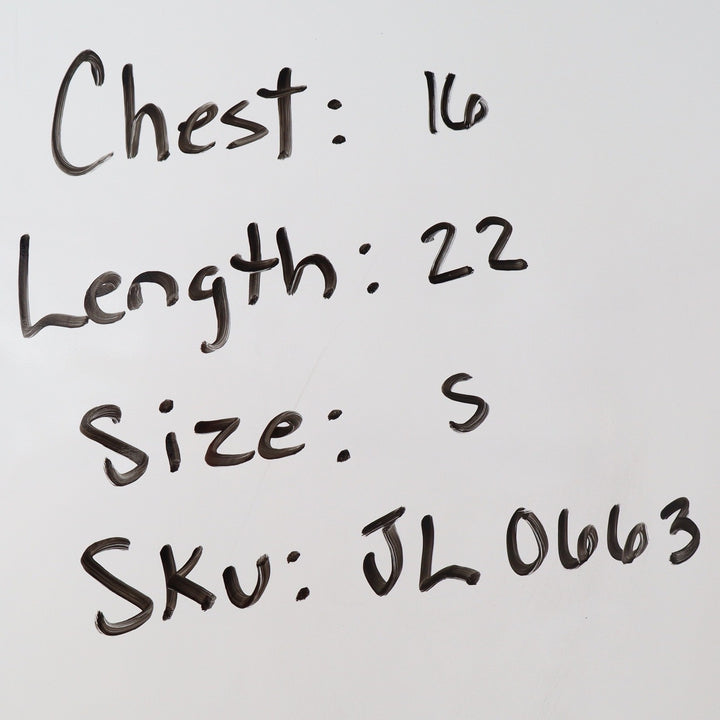 Chest: 16
Length: 22
Size: S
SKU: JL 0663